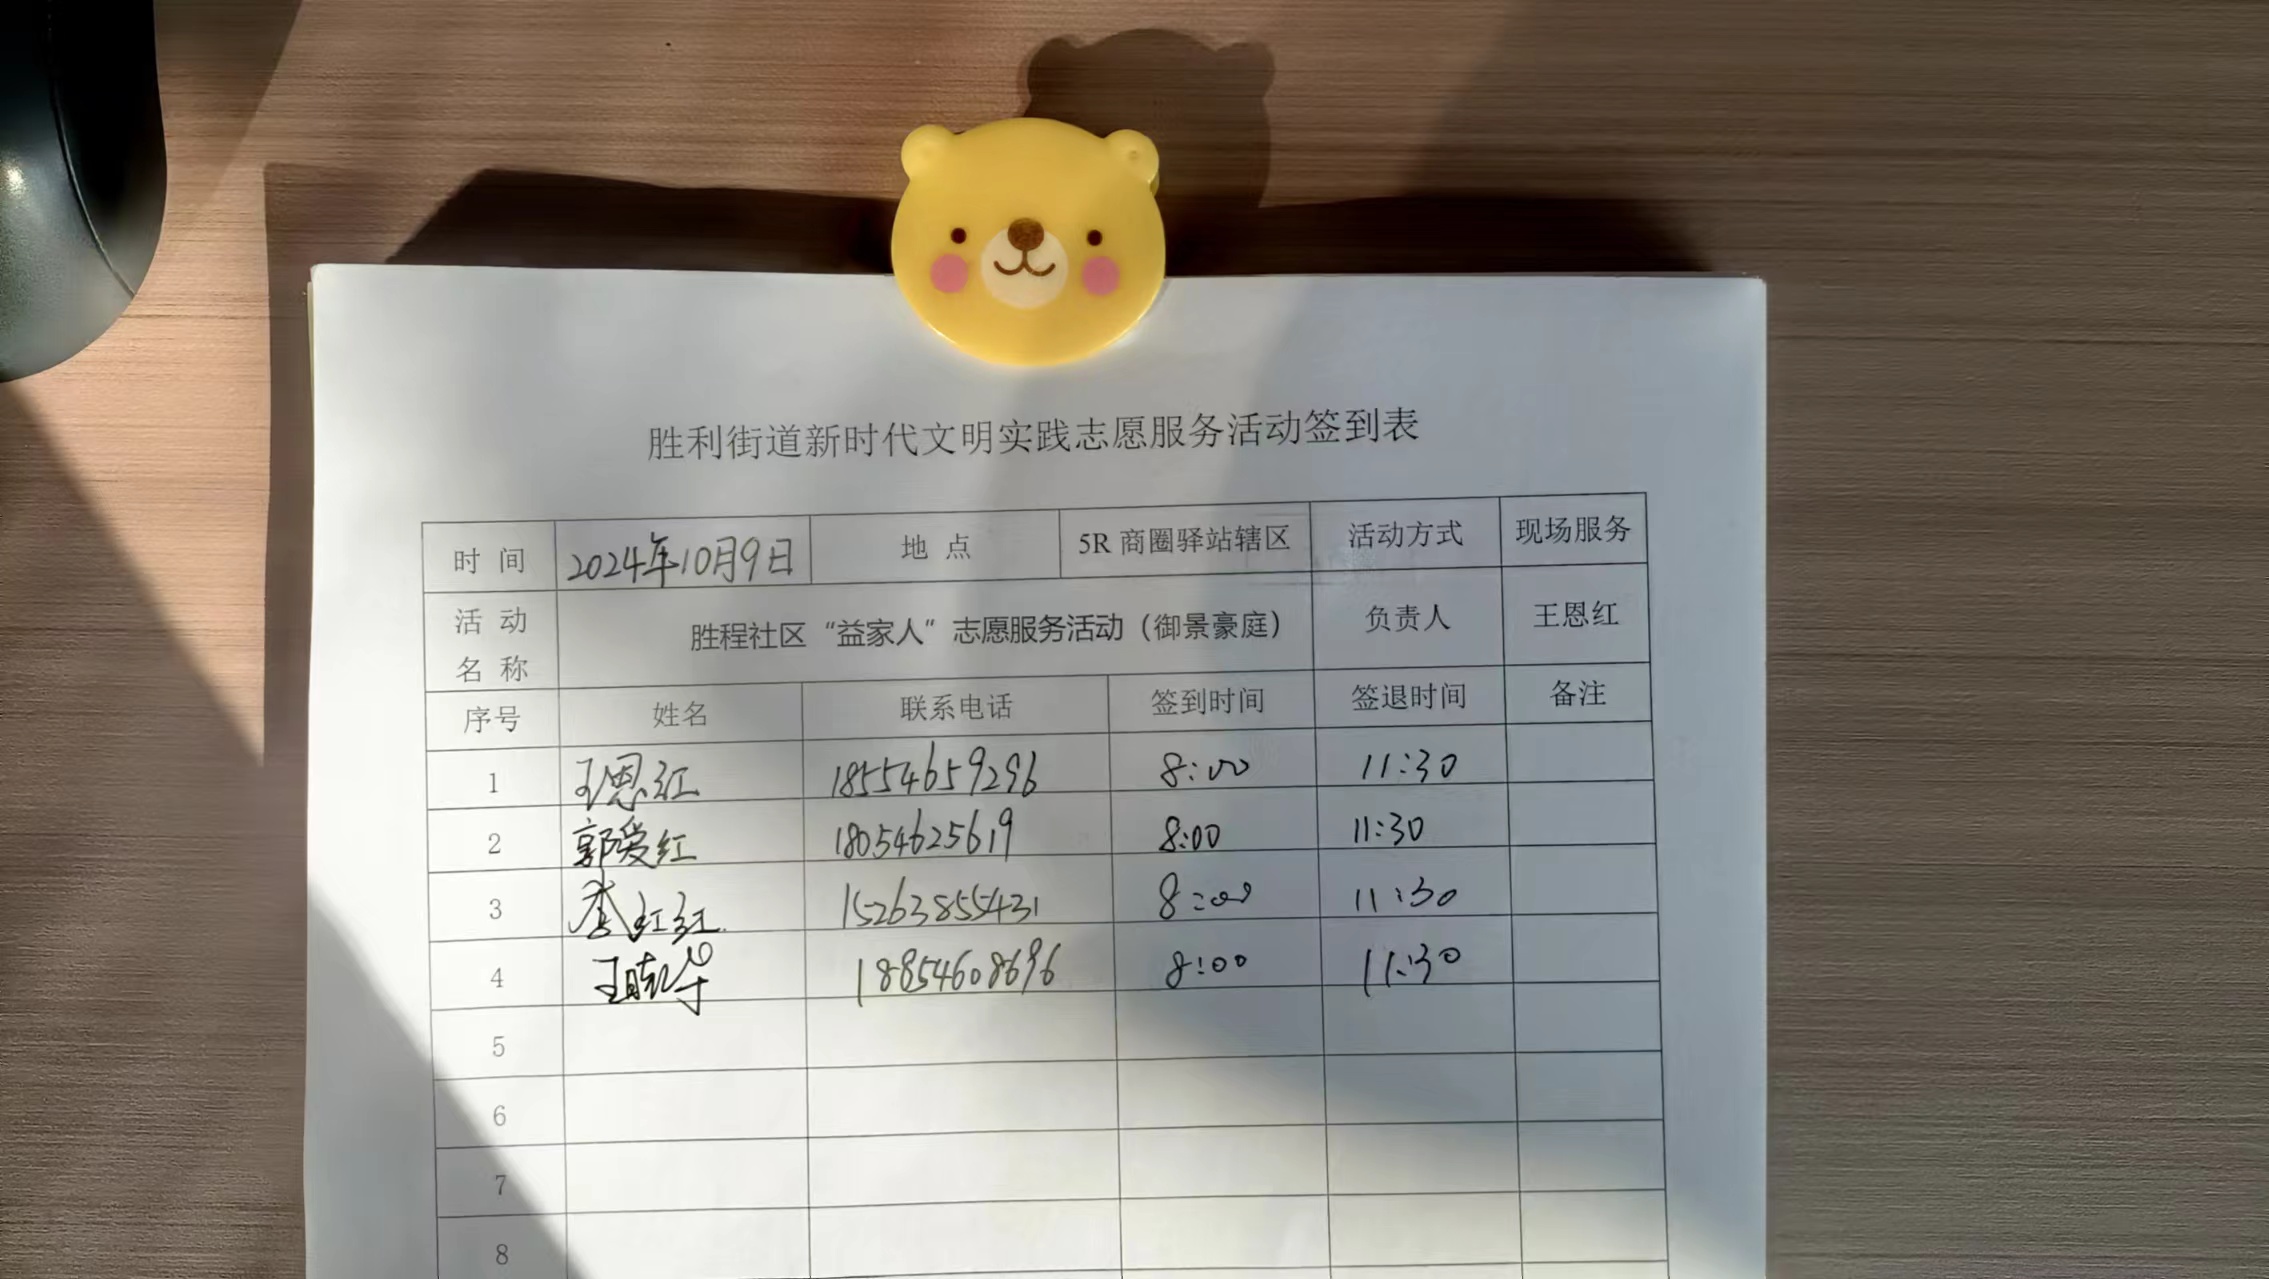 胜利街道新时代文明实践志愿服务活动签到表
时 间 2024年10月9日 地 点 5R 商圈驿站辖区 活动方式 现场服务
活 动 名 称 胜程社区“益家人”志愿服务活动（御景豪庭） 负责人 王恩红
序号 姓名 联系电话 签到时间 签退时间 备注
1 王恩红 18554659296 8:00 11:30
2 郭爱红 18054625619 8:00 11:30
3 李红红 15263855431 8:00 11:30
4 王晓华 18854608696 8:00 11:30
5
6
7
8